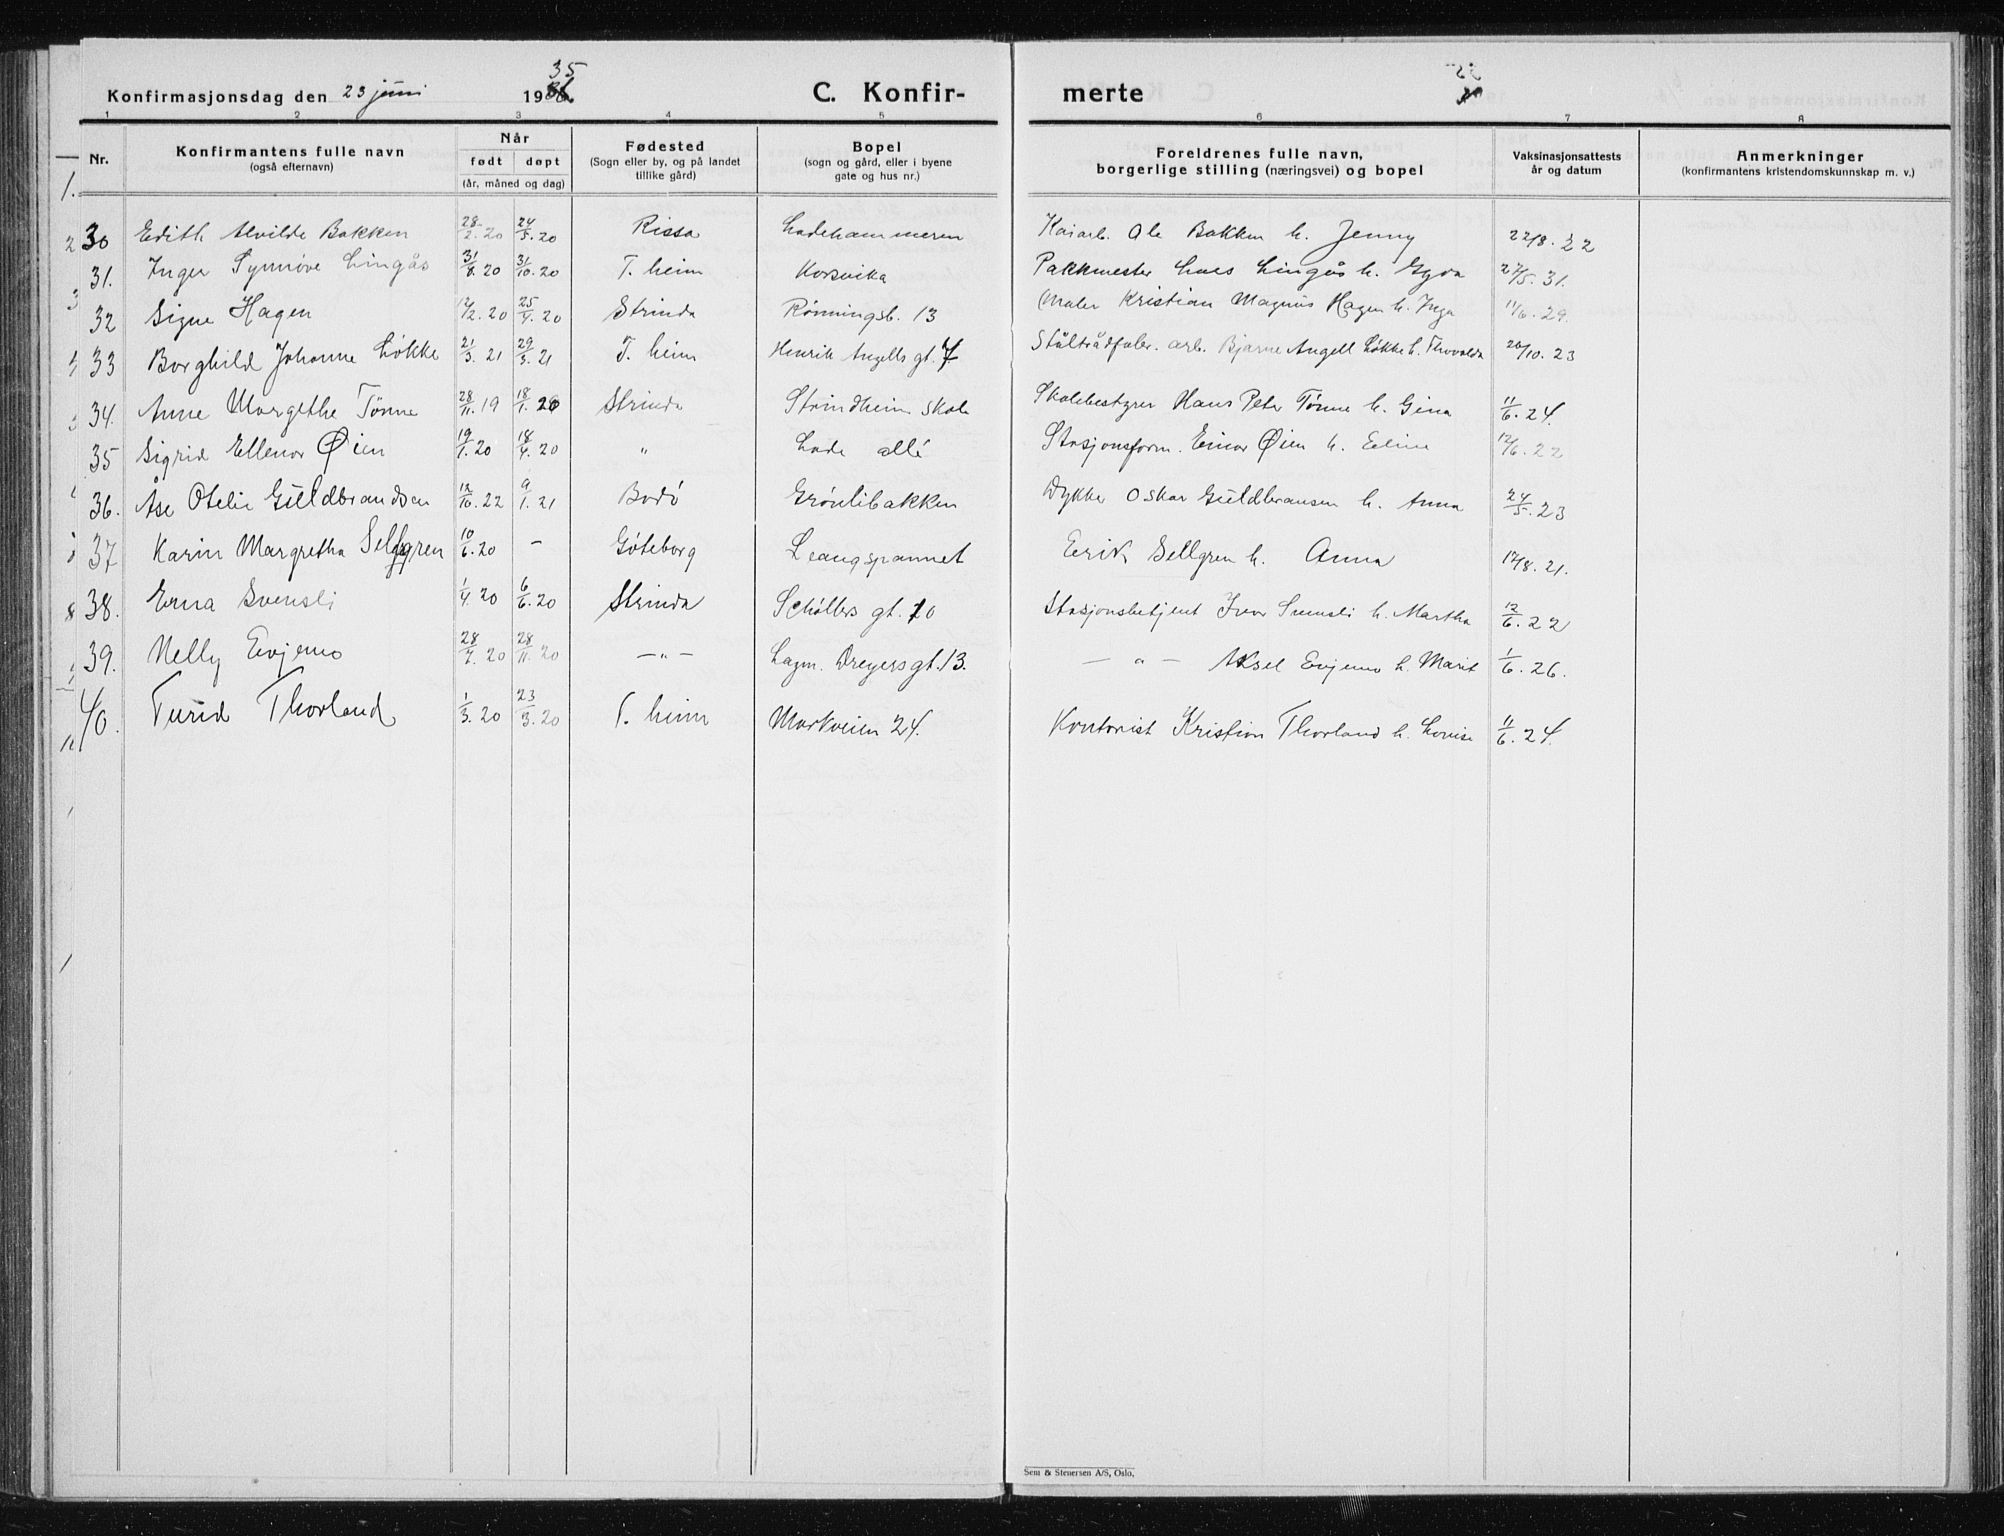 Konfirmasjonsdag den 23 juni 1935
C. Konfir- merte
1 2 3 4 5 6 7 8
Nr. Konfirmantens fulle navn (også efternavn) Når født døpt (år, måned og dag) Fødested (Sogn eller by, og på landet tillike gård) Bopel (sogn og gård, eller i byene gate og hus nr.) Foreldrenes fulle navn, borgerlige stilling (næringsvei) og bopel Vaksinasjonsattests år og datum Anmerkninger (konfirmantens kristendomskunnskap m. v.)
30 Edith Alvilde Bakken 28/2.20 24/5.20 Rissa Ladehammeren Kaiarb. Ole Bakken h. Jenny 22/8.22
31. Inger Synnøve Lingås 31/8.20 31/10.20 T.heim Korsvika Pakkmester Lars Lingås h. Gyda 27/5.31.
32 Signe Hagen 12/2.20 25/4.20 Strinda Rønningsb. 13 Maler Kristian Magnus Hagen h. Inga 11/6.29.
33 Borghild Johanne Løkke 21/3.21 29/3.21 T.heim Henrik Angells gt. 7 Ståltrådfabr. arb. Bjarne Angell Løkke h. Thovalda 20/10.23
34. Anne Margethe Tønne 28/11.19 18/1.20 Strinda Strindheim skole Skolebestyrer Hans Peter Tønne h. Gina 11/6.24.
35 Sigrid Ellenor Øien 19/1.20 18/4.20 " Lade allé Stasjonsform. Einar Øien h. Eline 12/6.22
36. Åse Otelie Guldbrandsen 12/10.22 9/1.21 Bodø Grønlibakken Dykker Oskar Guldbransen h. Anna 24/5.23
37 Karin Margretha Sellgren 10/6.20 - Göteborg Leangspannet Erik Sellgren h. Anna 17/8.21.
38. Erna Svensli 1/4.20 6/6.20 Strinda Schøllers gt. 10 Stasjonsbetjent Ivar Svensli h. Martha 12/6.22
39. Nelly Evjemo 28/7.20 28/11.20 —"— Lagm. Dreyers gt. 13. —"— Aksel Evjemo h. Marit 1/6.26.
40. Turid Thorland 1/3.20 23/3.20 T.heim Markveien 24. Kontorist Kristian Thorland h. Lovise 11/6.24.
Sem & Stenersen A/S, Oslo.